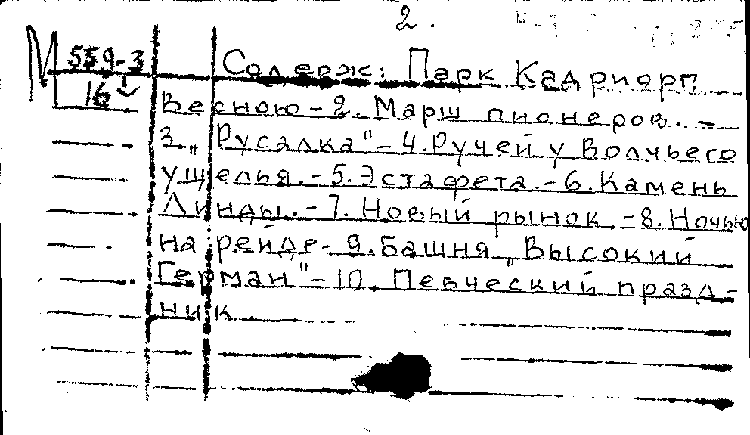 2.
М 559-3
16
Содерж: Парк Кадриорг
весною - 2. Марш пионеров. -
3. „Русалка" - 4. Ручей у Волчьего
ущелья. - 5. Эстафета. - 6. Камень
Линды. - 7. Новый рынок - 8. Ночью
на рейде - 9. Башня „Высокий
Герман" - 10. Певческий празд-
ник